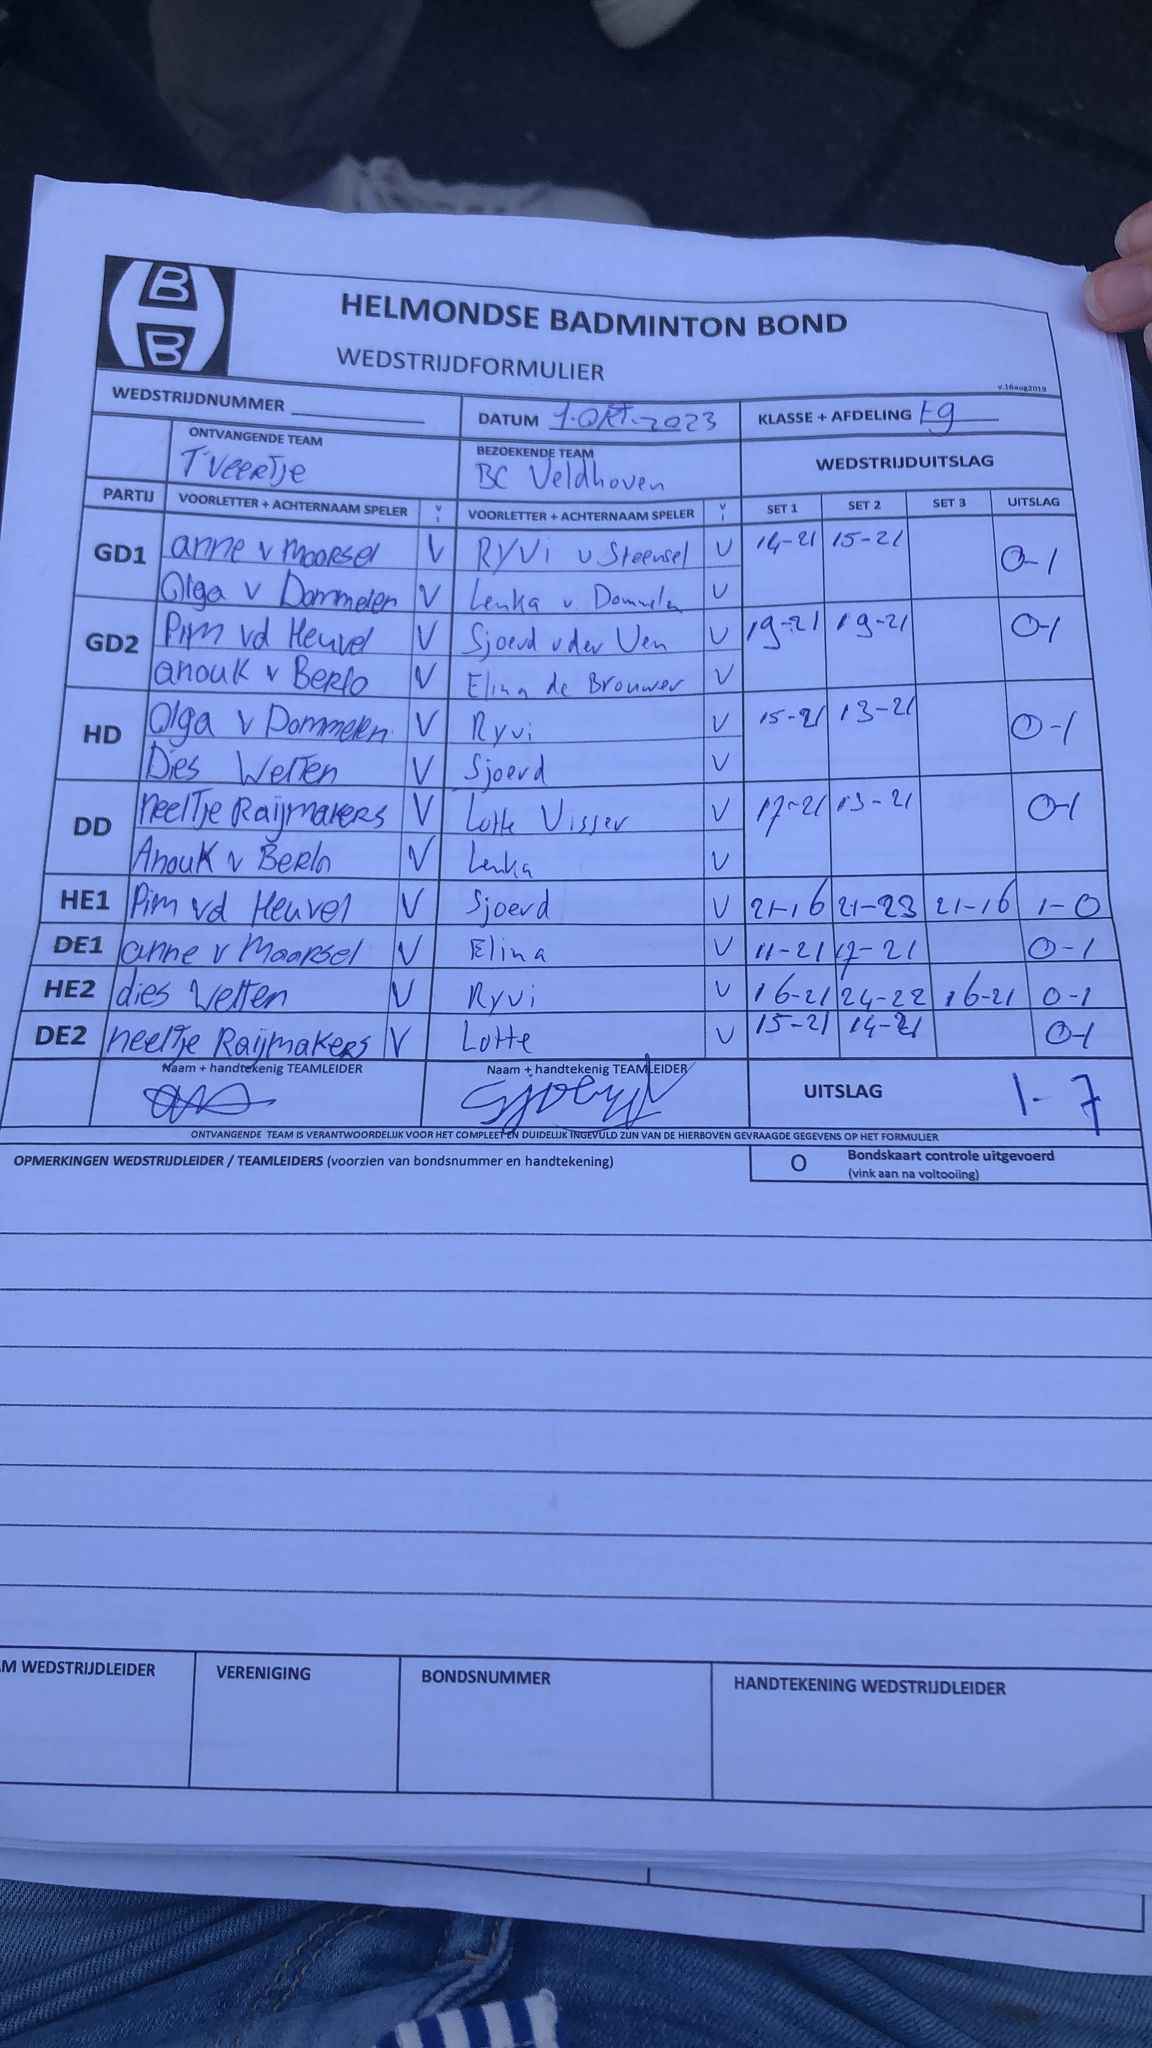 HELMONDSE BADMINTON BOND
WEDSTRIJDFORMULIER
v.16aug2019
WEDSTRIJDNUMMER DATUM 1-OKT-2023 KLASSE + AFDELING
ONTVANGENDE TEAM BEZOEKENDE TEAM WEDSTRIJDUITSLAG
T'VEERTJE BC Veldhoven
PARTIJ VOORLETTER + ACHTERNAAM SPELER V I VOORLETTER + ACHTERNAAM SPELER V I SET 1 SET 2 SET 3 UITSLAG
GD1 anne v Maarsel V Ryvi v Steensel V 14-21 15-21 0-1
Olga v Dommelen V Lenka v Dommeln V
GD2 Pim vd Heuvel V Sjoerd v der Ven V 19-21 19-21 0-1
anouk v Berlo V Elina de Brouwer V
HD Olga v Dommelen V Ryvi V 15-21 13-21 0-1
Dies Wetten V Sjoerd V
DD neeltje Raijmakers V Lotte Visser V 17-21 13-21 0-1
Anouk v Berlo V Lenka V
HE1 Pim vd Heuvel V Sjoerd V 21-16 21-23 21-16 1-0
DE1 anne v Maarsel V Elina V 11-21 17-21 0-1
HE2 dies Wetten V Ryvi V 16-21 24-22 16-21 0-1
DE2 neeltje Raijmakers V Lotte V 15-21 14-21 0-1
Naam + handtekenig TEAMLEIDER Naam + handtekenig TEAMLEIDER UITSLAG 1-7
ONTVANGENDE TEAM IS VERANTWOORDELIJK VOOR HET COMPLEET EN DUIDELIJK INGEVULD ZIJN VAN DE HIERBOVEN GEVRAAGDE GEGEVENS OP HET FORMULIER
OPMERKINGEN WEDSTRIJDLEIDER / TEAMLEIDERS (voorzien van bondsnummer en handtekening) O Bondskaart controle uitgevoerd
(vink aan na voltooiing)
M WEDSTRIJDLEIDER VERENIGING BONDSNUMMER HANDTEKENING WEDSTRIJDLEIDER